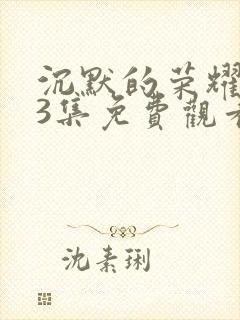 沉默的荣耀
3集免費觀看
沈素琍